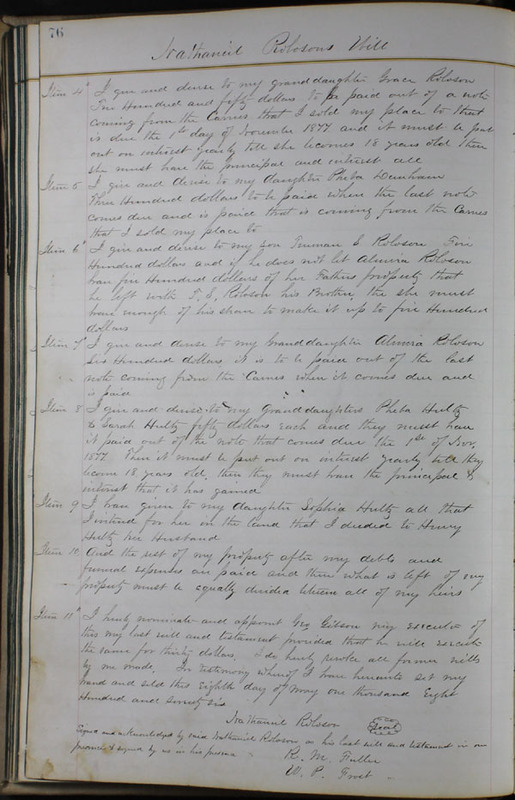 76
Nathaniel Robosons Will
Item 4th I give and devise to my granddaughter Grace Roboson
Five Hundred and fifty dollars to be paid out of a note
coming from the Carnes that I sold my place to that
is due the 1st day of November 1877 and it must be put
out on interest yearly till she becomes 18 years old then
she must have the principal and interest all
Item 5 I give and devise to my daughter Pheba Denham
Three Hundred dollars to be paid when the last note
comes due and is paid that is coming from the Carnes
that I sold my place to
Item 6th I give and devise to my Son Truman S Roboson Five
Hundred dollars and if he does not let Almira Roboson
have five Hundred dollars of her Fathers property that
he left with T. S. Roboson his Brother, the she must
have enough of his share to make it up to five Hundred
dollars
Item 7th I give and devise to my Granddaughter Almira Roboson
Six Hundred dollars it is to be paid out of the last
note coming from the Carnes when it comes due and
is paid
Item 8 I give and devise to my Granddaughters Pheba Hultz
& Sarah Hultz fifty dollars each and they must have
it paid out of the note that comes due the 1st of Nov,
1877 Then it must be put out on interest yearly till they
become 18 years old, then they must have the principal &
interest that it has gained
Item 9 I have given to my daughter Sophia Hultz all that
I intend for her in the land that I deeded to Henry
Hultz her Husband
Item 10 And the rest of my property after my debts and
funeral expenses are paid and then what is left of my
property must be equally divided between all of my heirs
Item 11th I hereby nominate and appoint Geo Gibson my executor of
this my last will and testament provided that he will execute
the same for thirty dollars, I do hereby revoke all former wills
by me made, In testimony whereof I have hereunto set my
hand and seal this Eighth day of May one thousand Eight
Hundred and seventy six
Nathaniel Roboson Seal
Signed and acknowledged by said Nathaniel Roboson as his last will and testament in our
presence & signed by us in his presence
R. M. Fuller
W. P. Frost